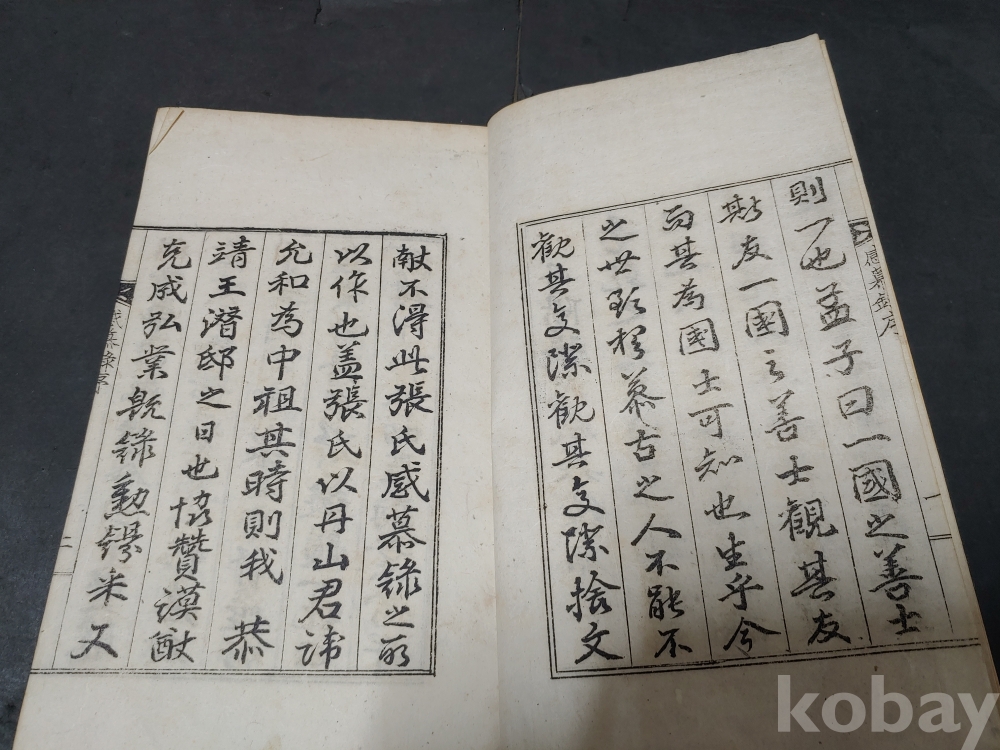 感慕錄序 一
則一也孟子曰一國之善士
斯友一國之善士觀其友
而其為國士可知也生乎今
之世慕古之人不能不
觀其交際觀其交際捨文
献不得此張氏感慕錄之所
以作也盖張氏以丹山君諱
允和為中祖其時則我 恭
靖王潛邸之日也協贊謨猷
克成弘業旣錄勳錫米又
感慕錄序 二
kobay